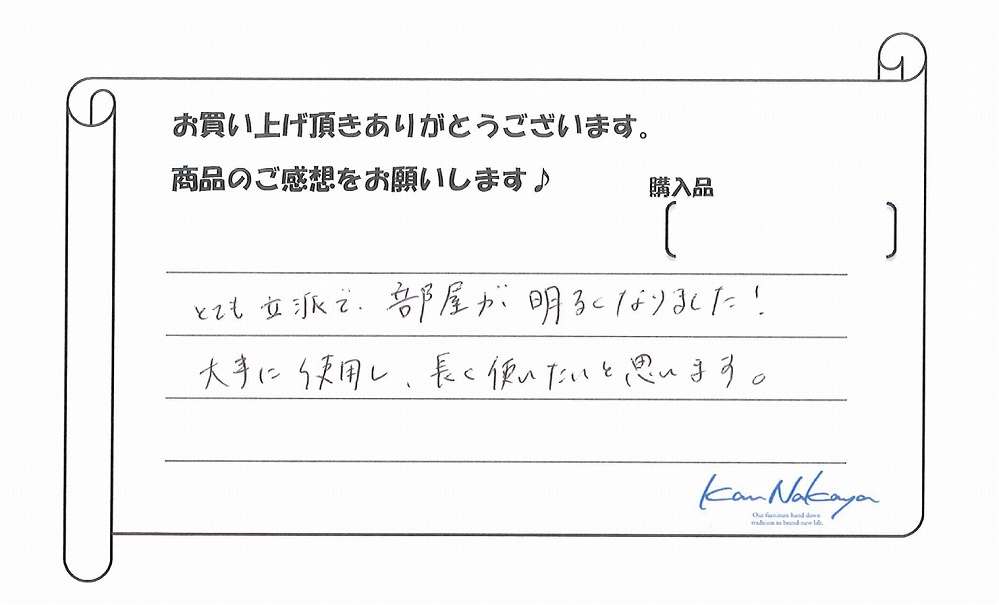 お買い上げ頂きありがとうございます。
商品のご感想をお願いします♪
購入品
とても立派で、部屋が明るくなりました！
大事に使用し、長く使いたいと思います。
Kan Nakaya
Our furniture hand down
tradition to brand-new life.